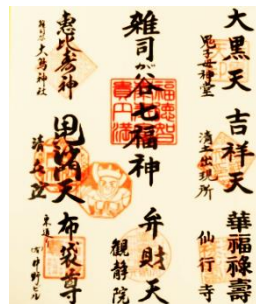 大黒天
鬼子母神堂
吉祥天
清土出現所
華福禄寿
仙行寺
雑司が谷七福神
弁財天
観静院
恵比寿神
大鳥神社
毘沙門天
清立院
布袋尊